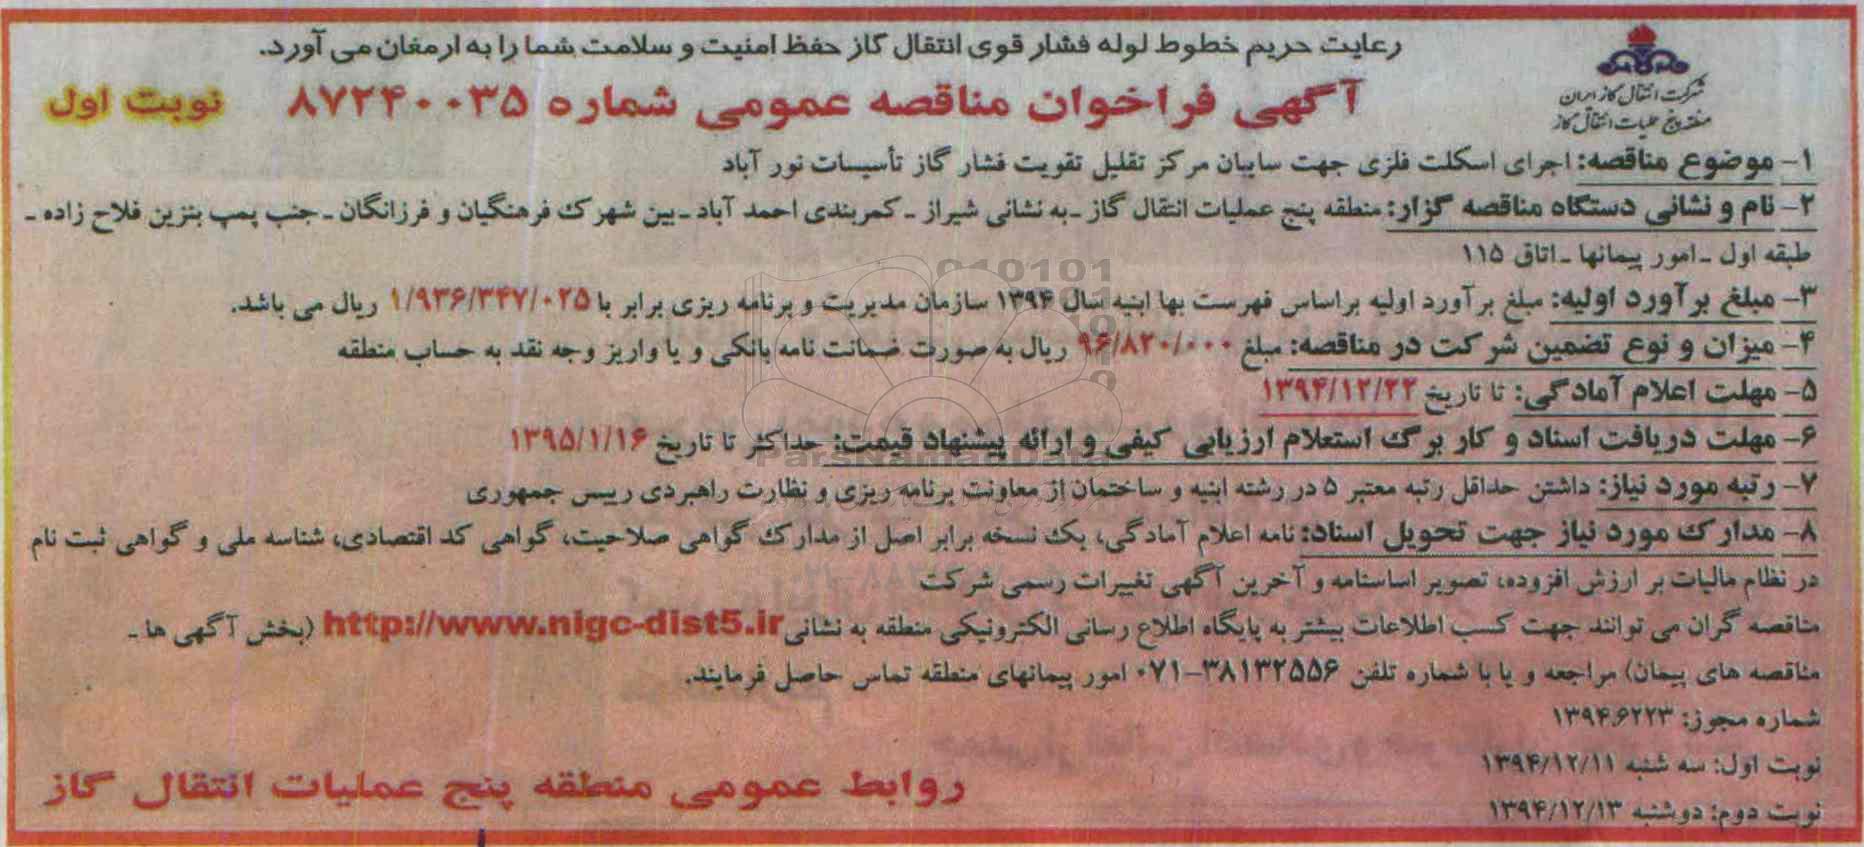 رعایت حریم خطوط لوله فشار قوی انتقال گاز حفظ امنیت و سلامت شما را به ارمغان می آورد.
شرکت انتقال گاز ایران
منطقه پنج عملیات انتقال گاز
آگهی فراخوان مناقصه عمومی شماره ۸۷۲۴۰۰۳۵ نوبت اول
۱- موضوع مناقصه: اجرای اسکلت فلزی جهت سایبان مرکز تقلیل تقویت فشار گاز تأسیسات نور آباد
۲- نام و نشانی دستگاه مناقصه گزار: منطقه پنج عملیات انتقال گاز ـ به نشانی شیراز ـ کمربندی احمد آباد ـ بین شهرک فرهنگیان و فرزانگان ـ جنب پمپ بنزین فلاح زاده ـ
طبقه اول ـ امور پیمانها ـ اتاق ۱۱۵
۳- مبلغ برآورد اولیه: مبلغ برآورد اولیه براساس فهرست بها ابنیه سال ۱۳۹۴ سازمان مدیریت و برنامه ریزی برابر با ۱/۹۳۶/۳۴۷/۰۲۵ ریال می باشد.
۴- میزان و نوع تضمین شرکت در مناقصه: مبلغ ۹۶/۸۲۰/۰۰۰ ریال به صورت ضمانت نامه بانکی و یا واریز وجه نقد به حساب منطقه
۵- مهلت اعلام آمادگی: تا تاریخ ۱۳۹۴/۱۲/۲۲
۶- مهلت دریافت اسناد و کار برگ استعلام ارزیابی کیفی و ارائه پیشنهاد قیمت: حداکثر تا تاریخ ۱۳۹۵/۱/۱۶
۷- رتبه مورد نیاز: داشتن حداقل رتبه معتبر ۵ در رشته ابنیه و ساختمان از معاونت برنامه ریزی و نظارت راهبردی رییس جمهوری
۸- مدارک مورد نیاز جهت تحویل اسناد: نامه اعلام آمادگی، یک نسخه برابر اصل از مدارک گواهی صلاحیت، گواهی کد اقتصادی، شناسه ملی و گواهی ثبت نام
در نظام مالیات بر ارزش افزوده، تصویر اساسنامه و آخرین آگهی تغییرات رسمی شرکت
مناقصه گران می توانند جهت کسب اطلاعات بیشتر به پایگاه اطلاع رسانی الکترونیکی منطقه به نشانی http://www.nigc-dist5.ir (بخش آگهی ها ـ
مناقصه های پیمان) مراجعه و یا با شماره تلفن ۳۸۱۳۲۵۵۶-۰۷۱ امور پیمانهای منطقه تماس حاصل فرمایند.
شماره مجوز: ۱۳۹۴.۶۲۲۳
نوبت اول: سه شنبه ۱۳۹۴/۱۲/۱۱
نوبت دوم: دوشنبه ۱۳۹۴/۱۲/۱۳
روابط عمومی منطقه پنج عملیات انتقال گاز
ParsNamadData